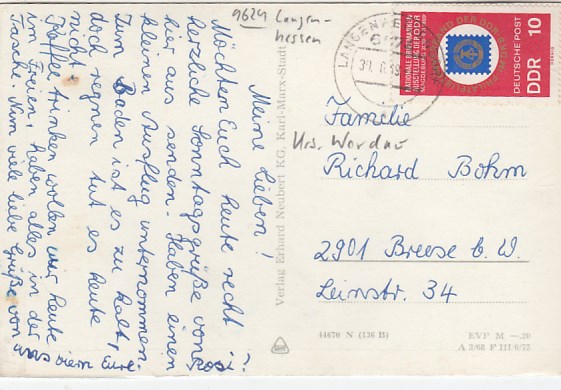 9629 Langen-
hessen
Meine Lieben!
Möchten Euch heute recht
herzliche Sonntagsgrüße von
hier aus senden. Haben einen
kleinen Ausflug unternommen.
Zum Baden ist es zu kalt,
doch regnen tut es heute
nicht.
Kaffee trinken wollen wir heute
im Freien, Haben alles in der
Tasche. Nun viele liebe Grüße von
uns vieren Eure Rosi!
Verlag Erhard Neubert KG, Karl-Marx-Stadt
LANGENHE
NATIONALE BRIEFMARKEN-
AUSSTELLUNG DER DDR
MAGDEBURG
DEUTSCHE POST
DDR 10
Familie
Krs. Werdau
Richard Böhm
2901 Breese b. W.
Leinstr. 34
44670 N (136 B)
EVP M —.20
A 2/68 F III/6/75